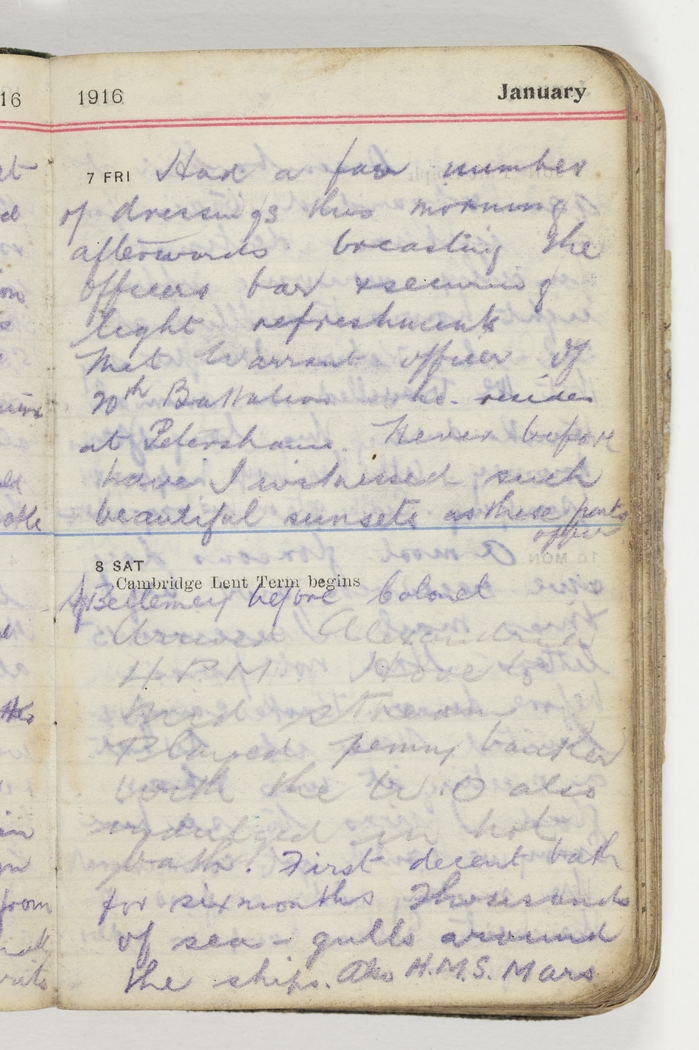 1916 January
7 FRI Had a few number
of dressings this morning
afterwards breasting the
officers bar & securing
light refreshments
Met Warrant officer of
20th Battalion who resides
at Petersham. Never before
have I witnessed such
beautiful sunsets as these parts
offer
8 SAT
Cambridge Lent Term begins
Bellemey before Colonel
Arrive Alexandria
4 P.M. Have to
in stream
Played penny banker
with the W.O also
indulged in hot
bath. First decent bath
for six months Thousands
of sea-gulls around
the ships. Also H.M.S. Mars